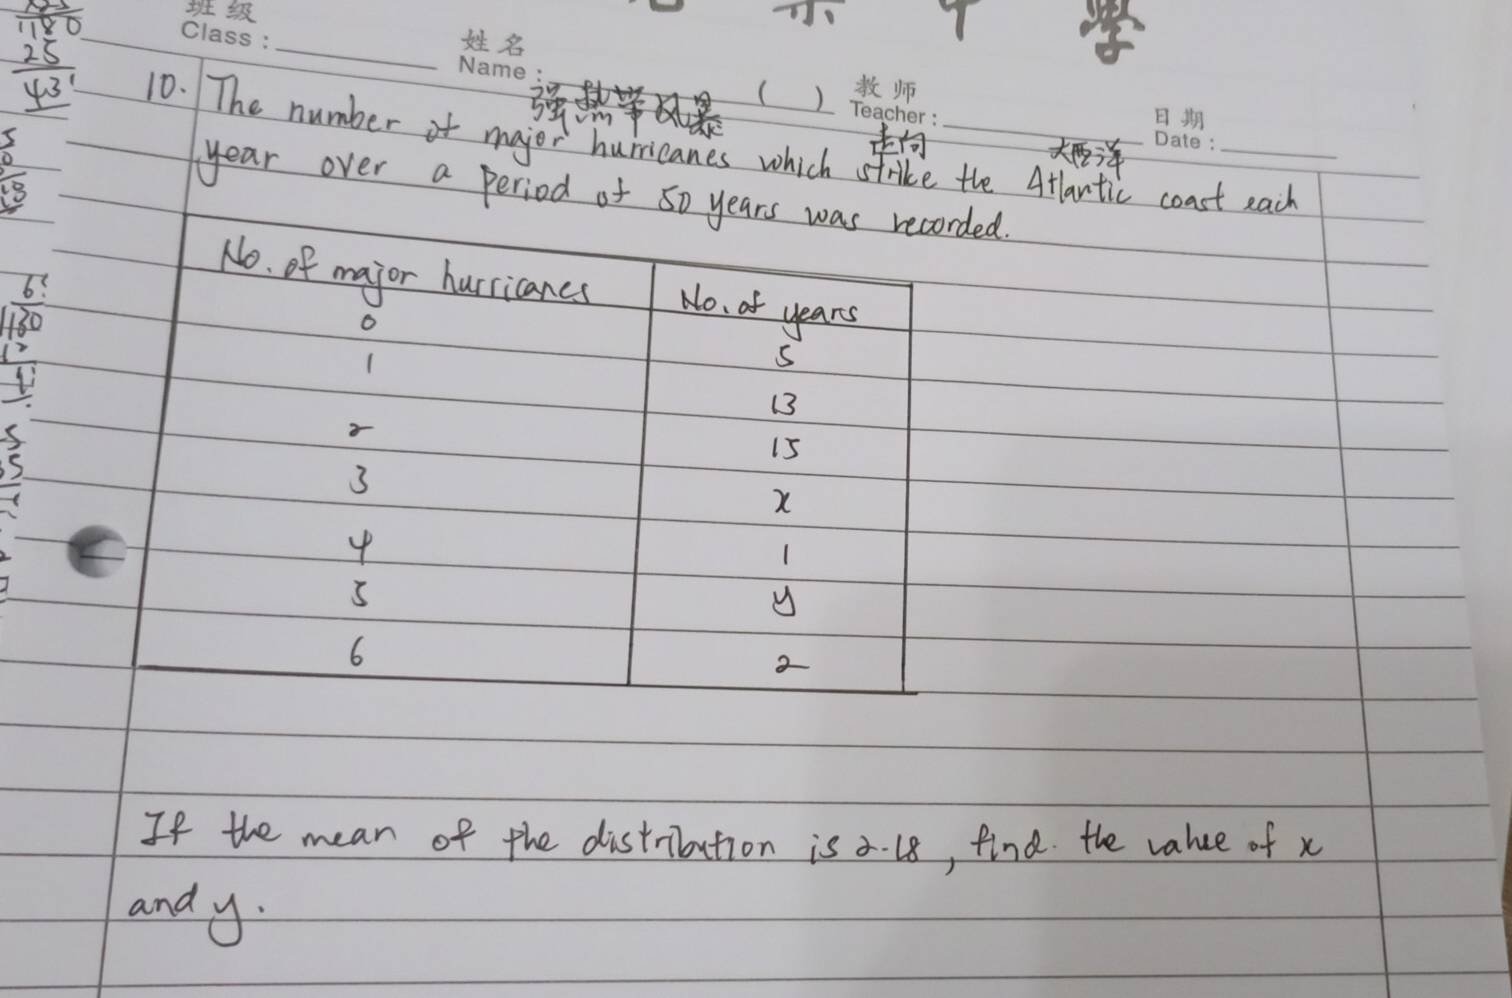 班级
Class :
姓名
Name :
( )
教师
Teacher :
日期
Date :
强热带风暴
走向
大西洋
10. The number of major hurricanes which strike the Atlantic coast each
year over a period of 50 years was recorded.
No. of major hurricanes No. of years
0 5
1 13
2 15
3 x
4 1
5 y
6 2
If the mean of the distribution is 2.18, find. the value of x
and y.
1180
25
43